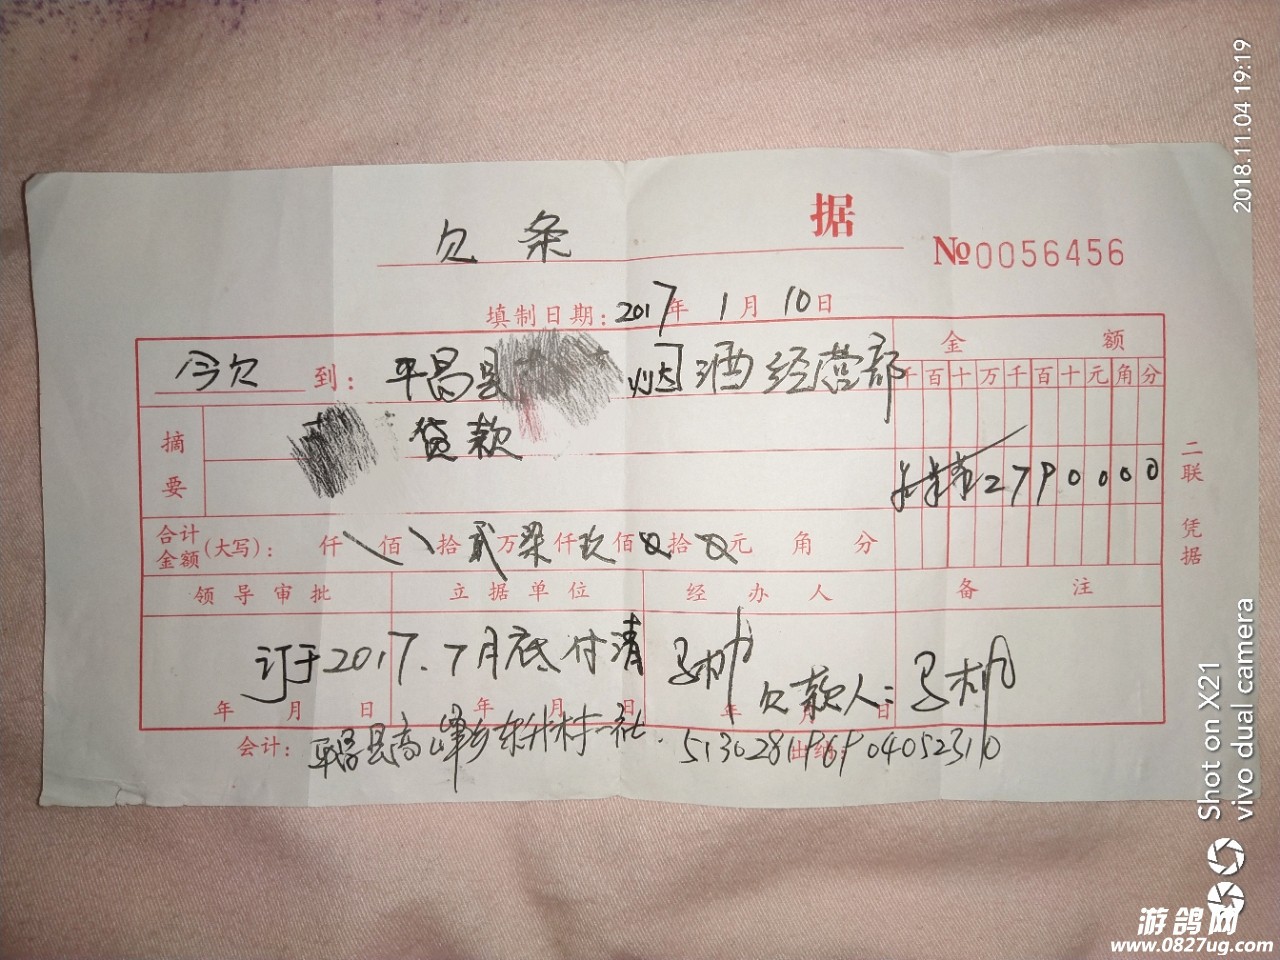 欠条 据
№0056456
填制日期：2017年1月10日
金额
今欠到：平昌县 烟酒经营部
千百十万千百十元角分
摘要
货款
2790000
合计金额(大写)： 仟 佰 拾贰万柒仟玖佰0拾0元 角 分
二联 凭据
领导审批 立据单位 经办人 备注
订于2017.7月底付清
欠款人：
年 月 日 年 月 日 年 月 日
会计： 平昌县高峰乡东升村一社. 出纳：
2018.11.04 19:19
Shot on X21
vivo dual camera
游鸽网
www.0827ug.com